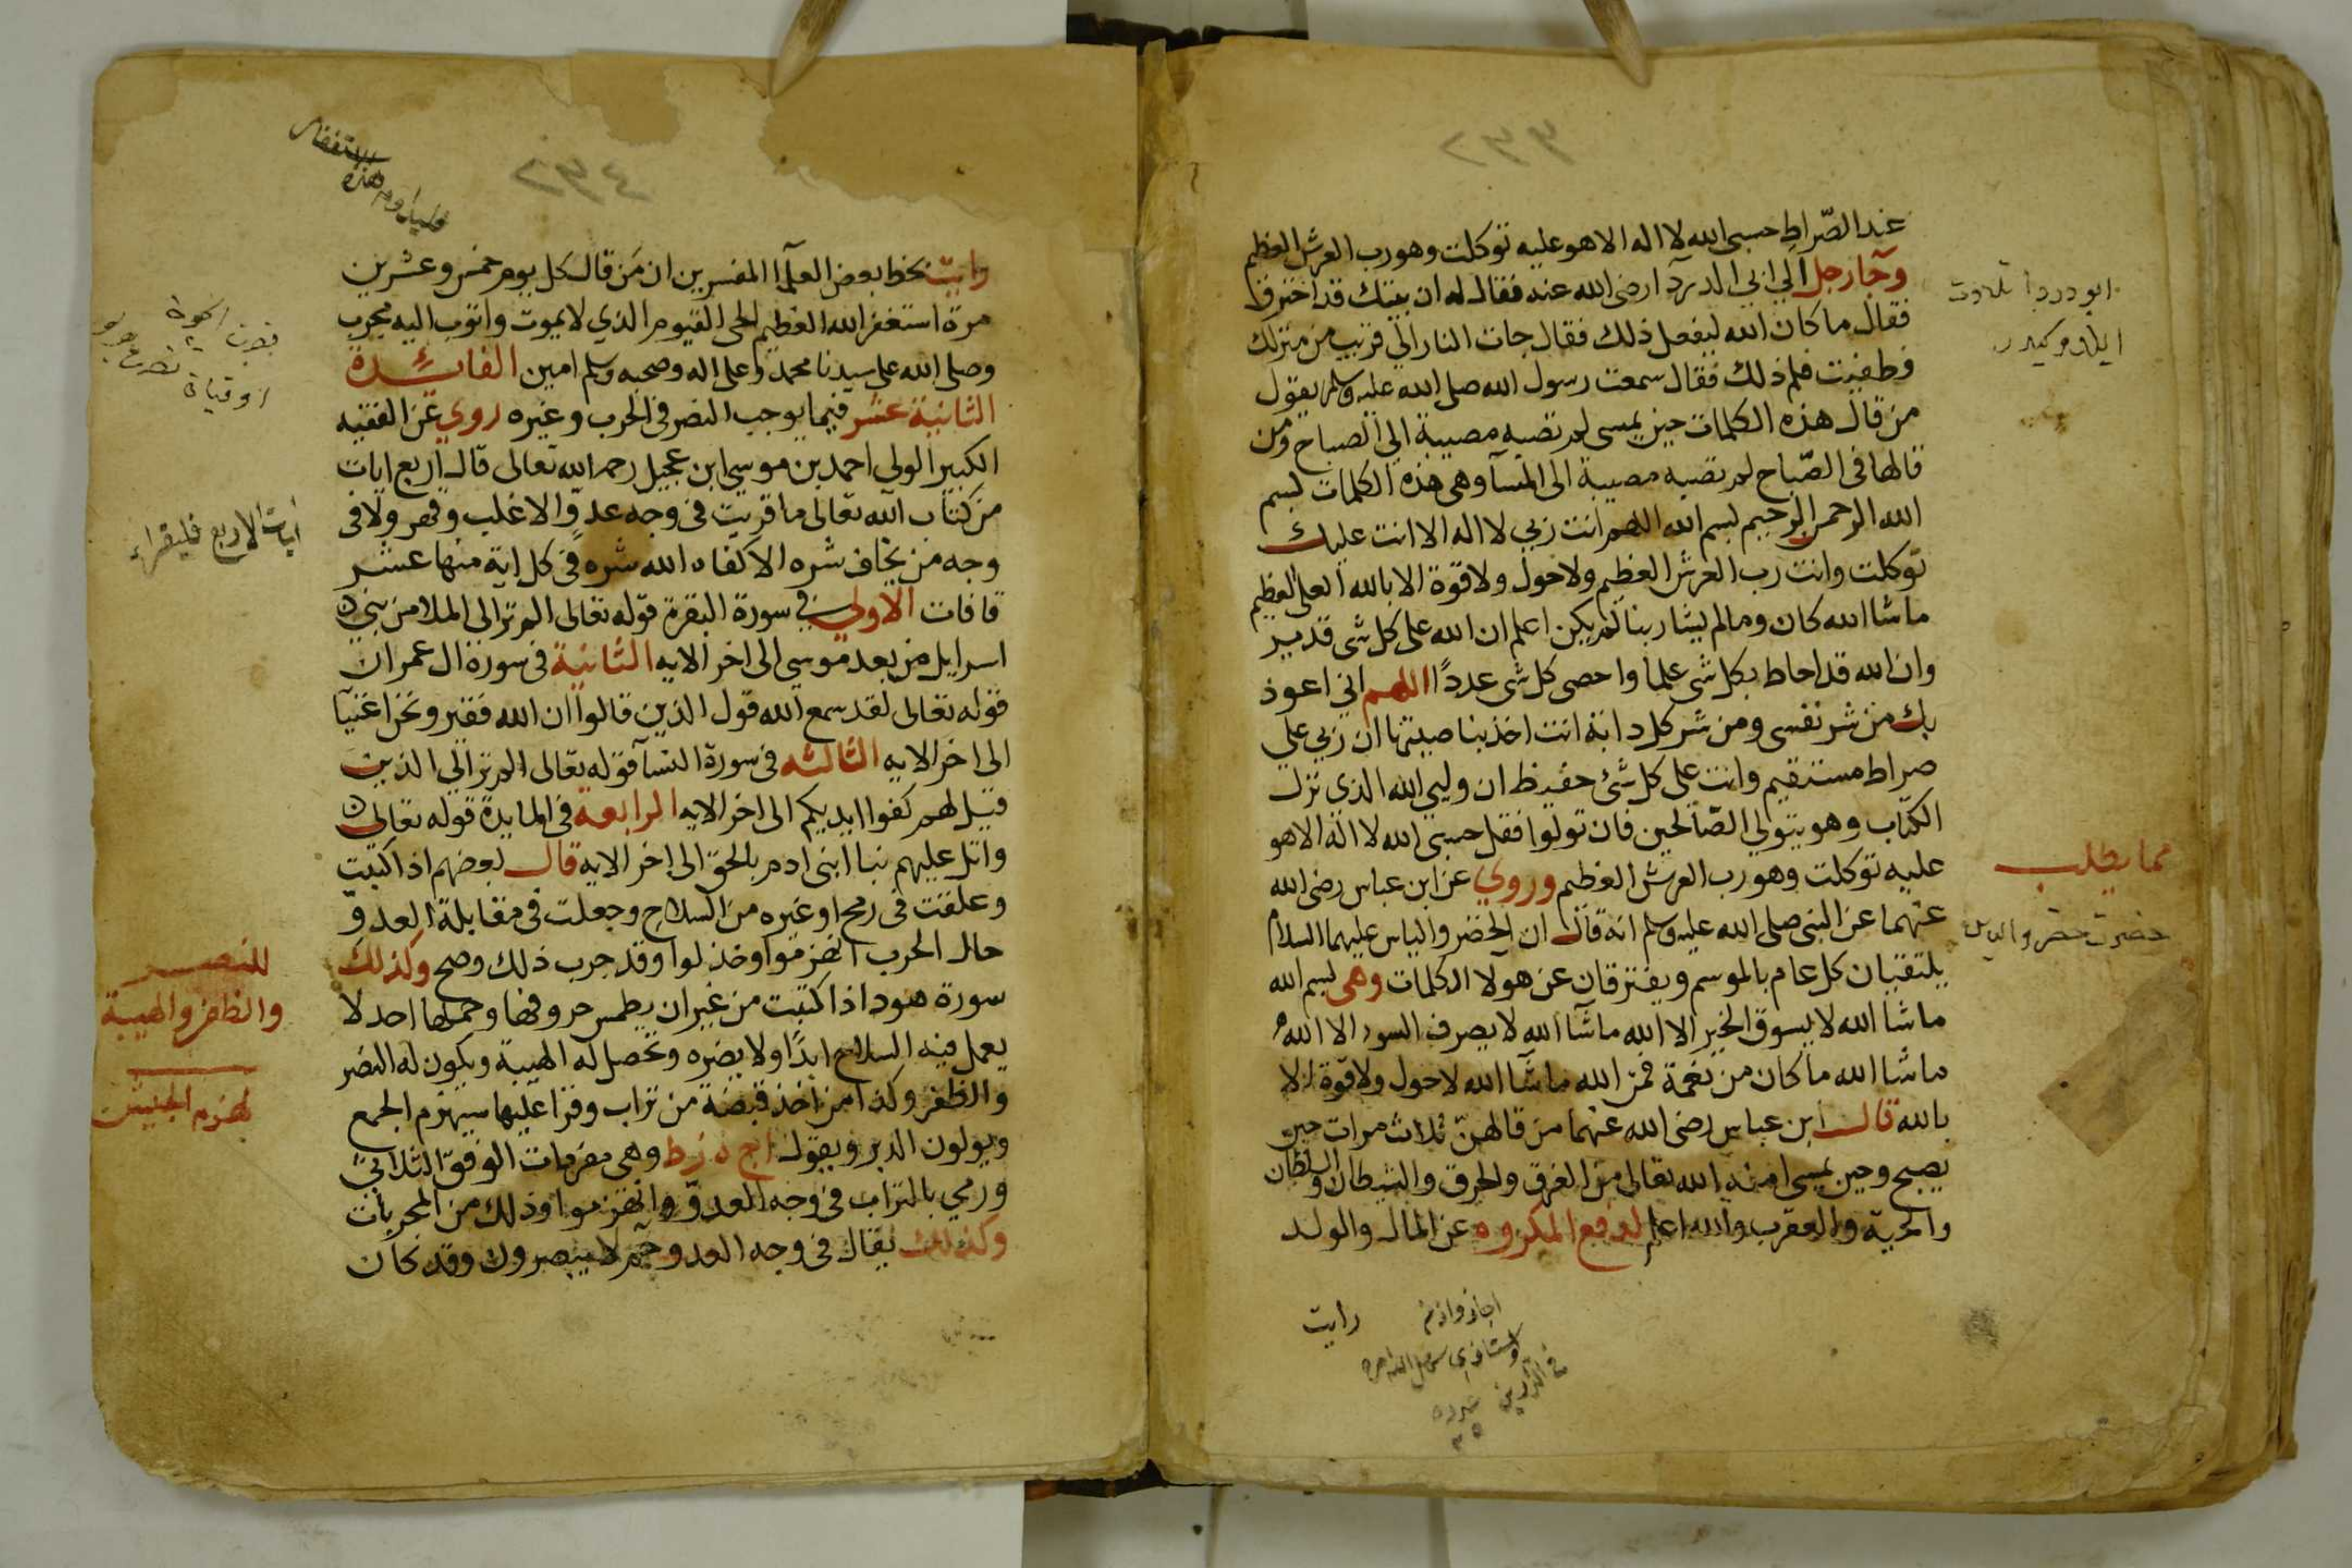 عند الصّراط حسبى الله لا اله الا هو عليه توكلت وهو رب العرش العظيم
وجآ رجل الي ابي الدردآ رضى الله عنه فقال له ان بيتك قد احترق
فقال ما كان الله ليفعل ذلك فقال جات النار الي قريب من منزلك
فطفيت فلم ذلك فقال سمعت رسول الله صلى الله عليه وسلم يقول
من قال هذه الكلمات حين يمسى لم تصبه مصيبة الي الصباح ومن
قالها فى الصّباح لم تصبه مصيبة الى المسآ وهى هذه الكلمات بسم
الله الرحمن الرحيم بسم الله اللهم انت ربي لا اله الا انت عليك
توكلت وانت رب العرش العظيم ولا حول ولا قوة الا بالله العلى العظيم
ماشا الله كان وما لم يشا ربنا لم يكن اعلم ان الله على كل شى قدير
وان الله قد احاط بكل شى علما واحصى كل شى عددًا اللهم اني اعوذ
بك من شر نفسى ومن شر كل دابة انت اخذ بناصيتها ان ربي علي
صراط مستقيم وانت على كل شئ حفيظ ان وليي الله الذي نزل
الكتاب وهو يتولي الصّالحين فان تولوا فقل حسبى الله لا اله الا هو
عليه توكلت وهو رب العرش العظيم وروي عن ابن عباس رضى الله
عنهما عن النبى صلى الله عليه وسلم انه قال ان الخضر والياس عليهما السلام
يلتقيان كل عام بالموسم ويفترقان عن هولآ الكلمات وهى بسم الله
ماشا الله لا يسوق الخير الا الله ماشآ الله لا يصرف السوء الا الله
ماشا الله ما كان من نعمة فمن الله ماشآ الله لا حول ولا قوة الا
بالله قال ابن عباس رضى الله عنهما من قالهنّ ثلاث مرات حين
يصبح وحين يمسى امنه الله تعالى من الغرق والحرق والشيطان والسلطان
والحية والعقرب والله اعلم لدفع المكروه عن المال والولد
رايت
ابو دردا تلاوت
ايلدوكيدر
مما يطلب
حضرت خضر والياس
رايت بخط بعض العلمآ المفسرين ان من قال كل يوم خمس وعشرين
مرة استغفر الله العظيم الحى القيوم الذي لا يموت واتوب اليه مجرب
وصلى الله على سيدنا محمد وعلى اله وصحبه وسلم امين الفائدة
الثانية عشر فيما يوجب النصر فى الحرب وغيره روي عن الفقيه
الكبير الولى احمد بن موسي ابن عجيل رحمه الله تعالى قال اربع ايات
من كتاب الله تعالى ما قريت فى وجه عدوّ الا غلب وقهر ولا فى
وجه من يخاف شره الا كفاه الله شره فى كل اية منها عشر
قافات الاولي فى سورة البقرة قوله تعالى الم تر الى الملا من بني
اسرايل من بعد موسي الى اخر الايه الثانية فى سورة ال عمران
قوله تعالى لقد سمع الله قول الذين قالوا ان الله فقير ونحن اغنيآ
الى اخر الايه الثالثه فى سورة النسآ قوله تعالى الم تر الي الذين
قيل لهم كفوا ايديكم الى اخر الايه الرابعة فى المايدة قوله تعالى
واتل عليهم نبا ابنى ادم بالحق الى اخر الايه قال بعضهم اذا كتبت
وعلقت فى رمح او غيره من السلاح وجعلت فى مقابلة العدوّ
حال الحرب انهزموا وخذلوا وقد جرب ذلك وصح وكذلك
سورة هود اذا كتبت من غير ان يطمس حروفها وحملها احد لا
يعمل فيه السلاح ابدًا ولا يضره وتحصل له الهيبة ويكون له النصر
والظفر وكذا من اخذ قبضة من تراب وقرا عليها سيهزم الجمع
ويولون الدبر ويقول وهى مفردات الوفق الثلاثى
ورمي بالتراب فى وجه العدوّ وانهزموا وذلك من المجربات
وكذلك يقال فى وجه العدو حم لا ينصرون وقد كان
ايات الاربع فليقراء
للنصر
والظفر والهيبة
لهزم الجيش